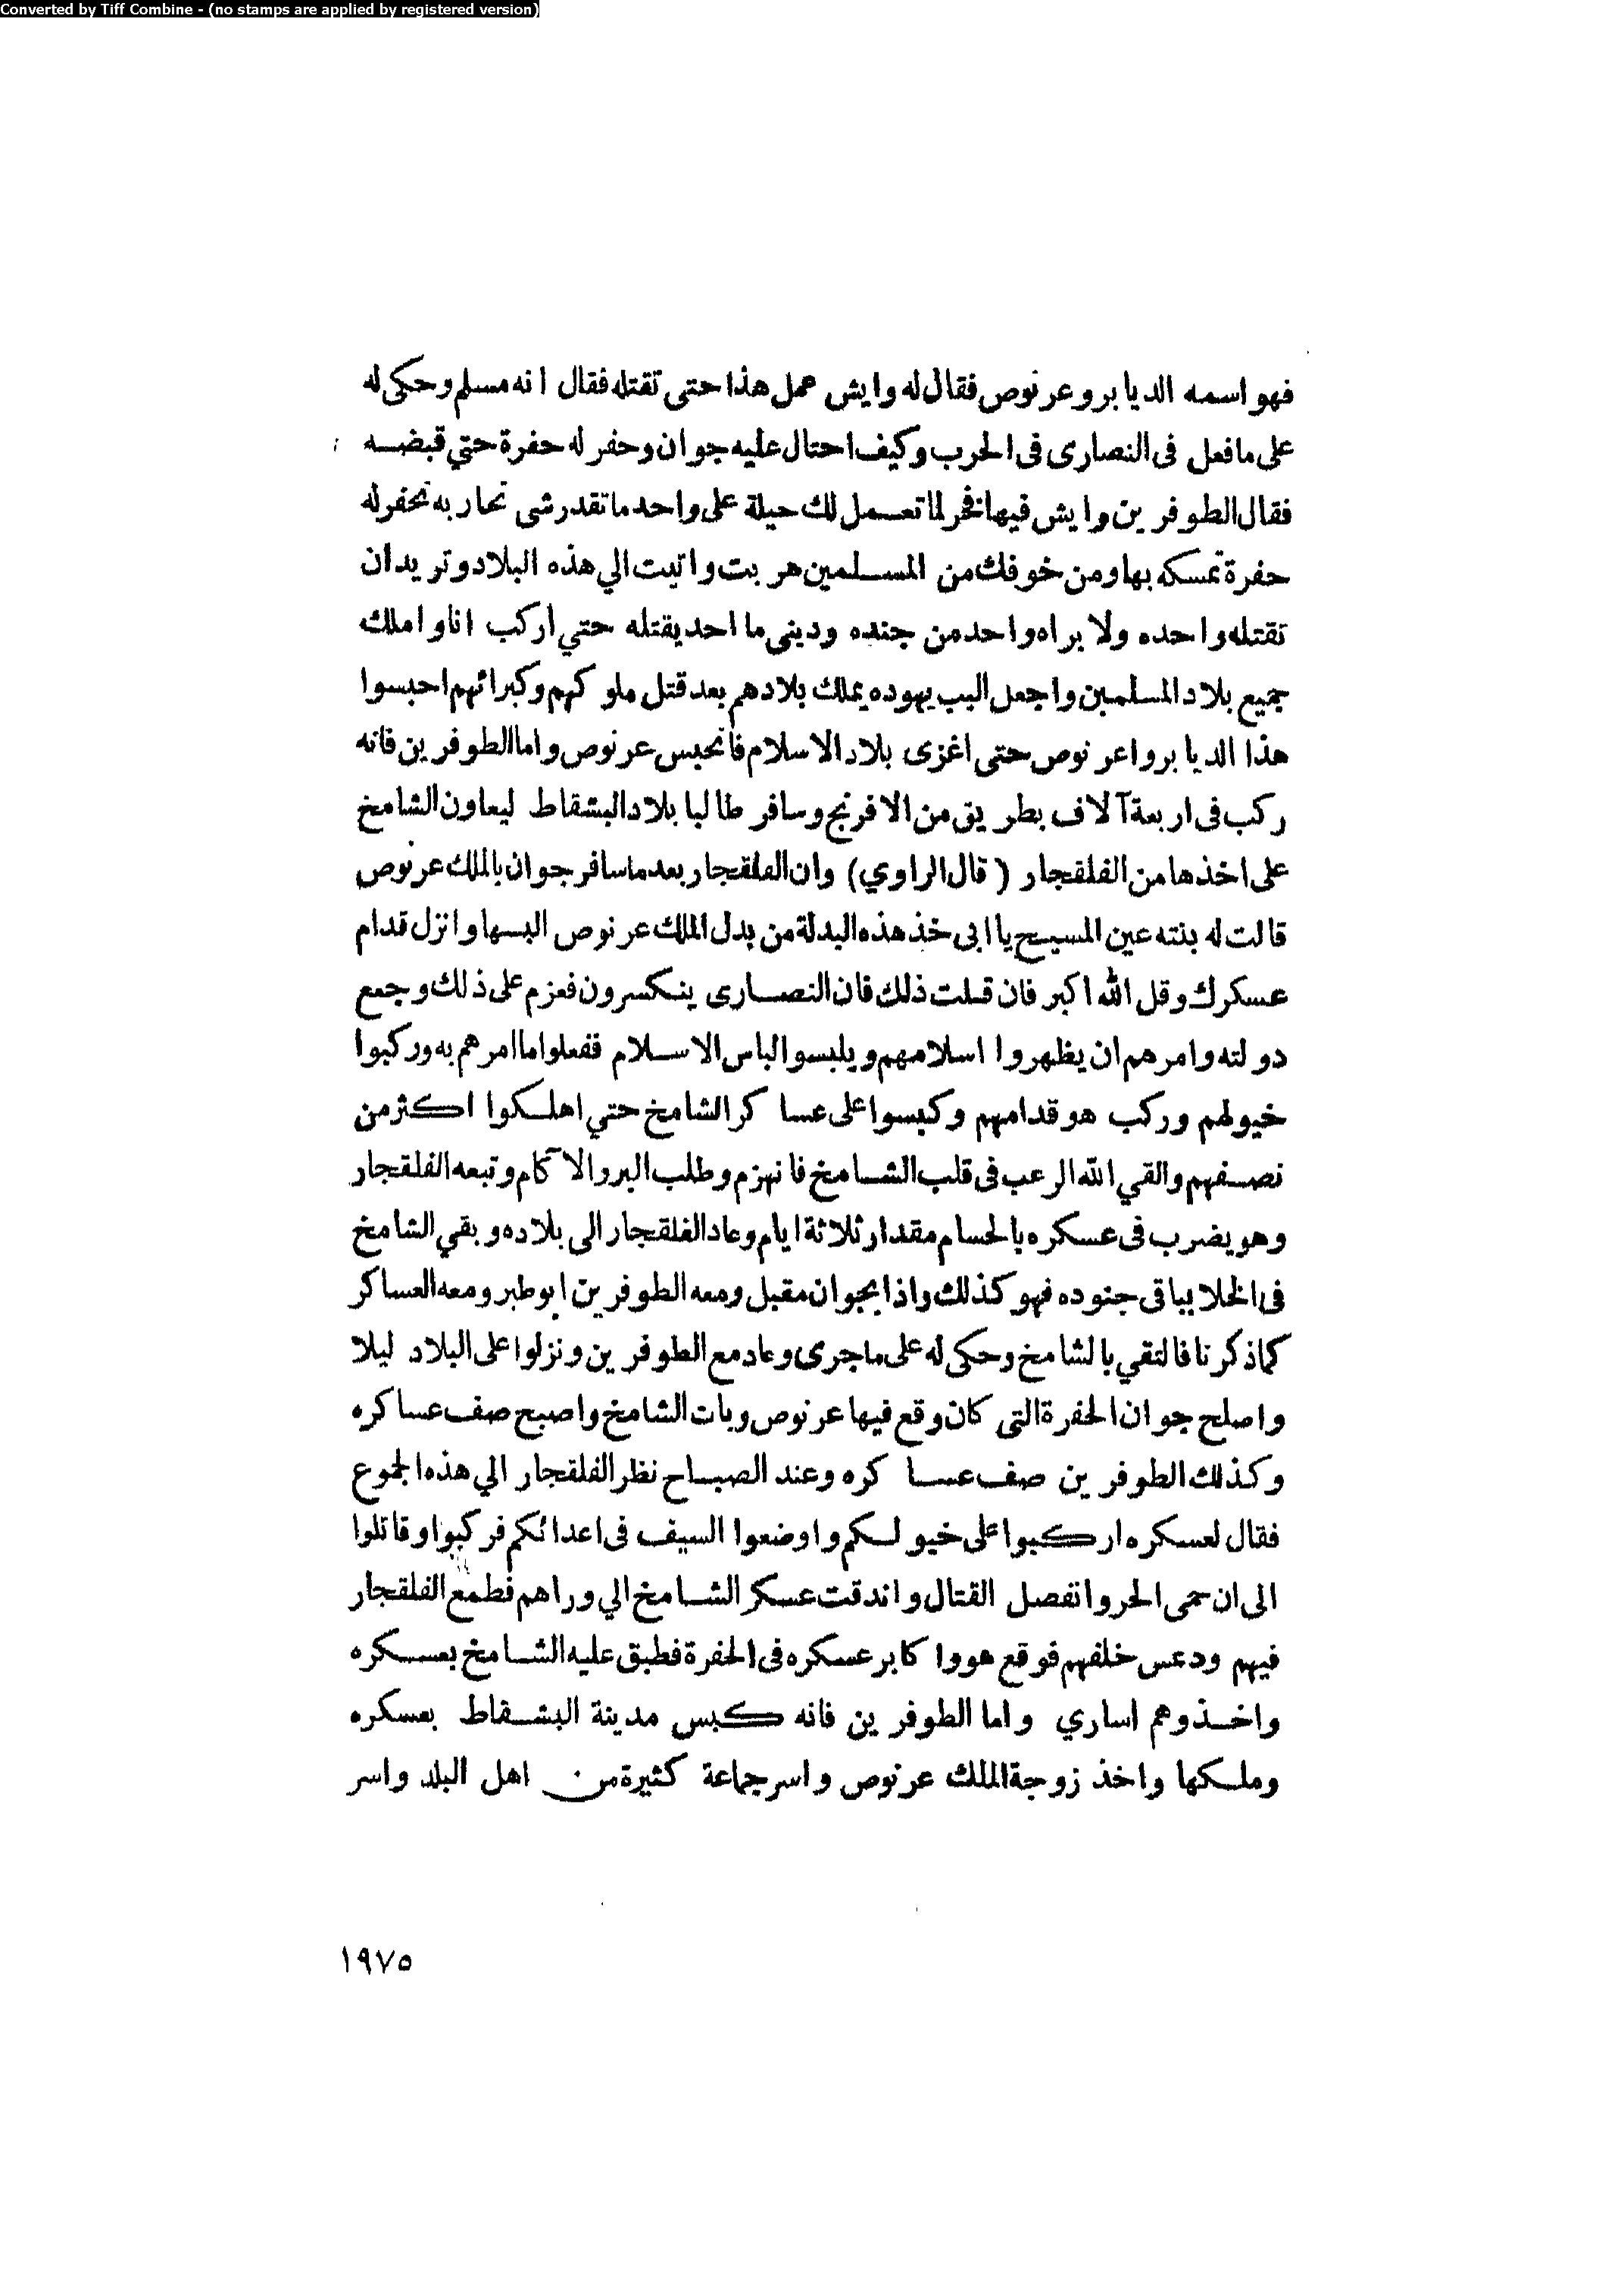 Converted by Tiff Combine - (no stamps are applied by registered version)
فهو اسمه الديابرو عرنوص فقال له وايش عمل هذا حتى تقتله فقال انه مسلم وحكى له
على ما فعل فى النصارى فى الحرب وكيف احتال عليه جوان وحفر له حفرة حتي قبضه
فقال الطوفرين وايش فيها فخر لما تعمل لك حيلة على واحد ما تقدرشى تحاربه تحفر له
حفرة تمسكه بها ومن خوفك من المسلمين هربت واتيت الي هذه البلاد وتريد ان
تقتله واحده ولا يراه واحد من جنده ودينى ما احد يقتله حتي اركب انا واملك
جميع بلاد المسلمين واجعل البب يهوده يملك بلادهم بعد قتل ملوكهم وكبرائهم احبسوا
هذا الديابروا عرنوص حتى اغزى بلاد الاسلام فانحبس عرنوص واما الطوفرين فانه
ركب فى اربعة آلاف بطريق من الافرنج وسافر طالبا بلاد البشقاط ليعاون الشامخ
على اخذها من الفلقجار (قال الراوي) وان الفلقجار بعد ما سافر جوان بالملك عرنوص
قالت له بنته عين المسيح يا ابى خذ هذه البدلة من بدل الملك عرنوص البسها وانزل قدام
عسكرك وقل الله اكبر فان قلت ذلك فان النصارى ينكسرون فعزم على ذلك وجمع
دولته وامرهم ان يظهروا اسلامهم ويلبسوا لباس الاسلام ففعلوا ما امرهم به وركبوا
خيولهم وركب هو قدامهم وكبسوا على عساكر الشامخ حتي اهلكوا اكثر من
نصفهم والقي الله الرعب فى قلب الشامخ فانهزم وطلب البر والآكام وتبعه الفلقجار
وهو يضرب فى عسكره بالحسام مقدار ثلاثة ايام وعاد الفلقجار الى بلاده وبقي الشامخ
فى الخلا يباقى جنوده فهو كذلك واذا بجوان مقبل ومعه الطوفرين ابو طبر ومعه العساكر
كما ذكرنا فالتقي بالشامخ وحكى له على ما جرى وعاد مع الطوفرين ونزلوا على البلاد ليلا
واصلح جوان الحفرة التى كان وقع فيها عرنوص وبات الشامخ واصبح صف عساكره
وكذلك الطوفرين صف عساكره وعند الصباح نظر الفلقجار الي هذه الجموع
فقال لعسكره اركبوا على خيولكم واوضعوا السيف فى اعدائكم فركبوا وقاتلوا
الى ان حمى الحر وانفصل القتال واندقت عسكر الشامخ الي وراهم فطمع الفلقجار
فيهم ودعس خلفهم فوقع هو واكابر عسكره فى الحفرة فطبق عليه الشامخ بعسكره
واخذوهم اساري واما الطوفرين فانه كبس مدينة البشقاط بعسكره
وملكها واخذ زوجة الملك عرنوص واسر جماعة كثيرة من اهل البلد واسر
١٩٧٥